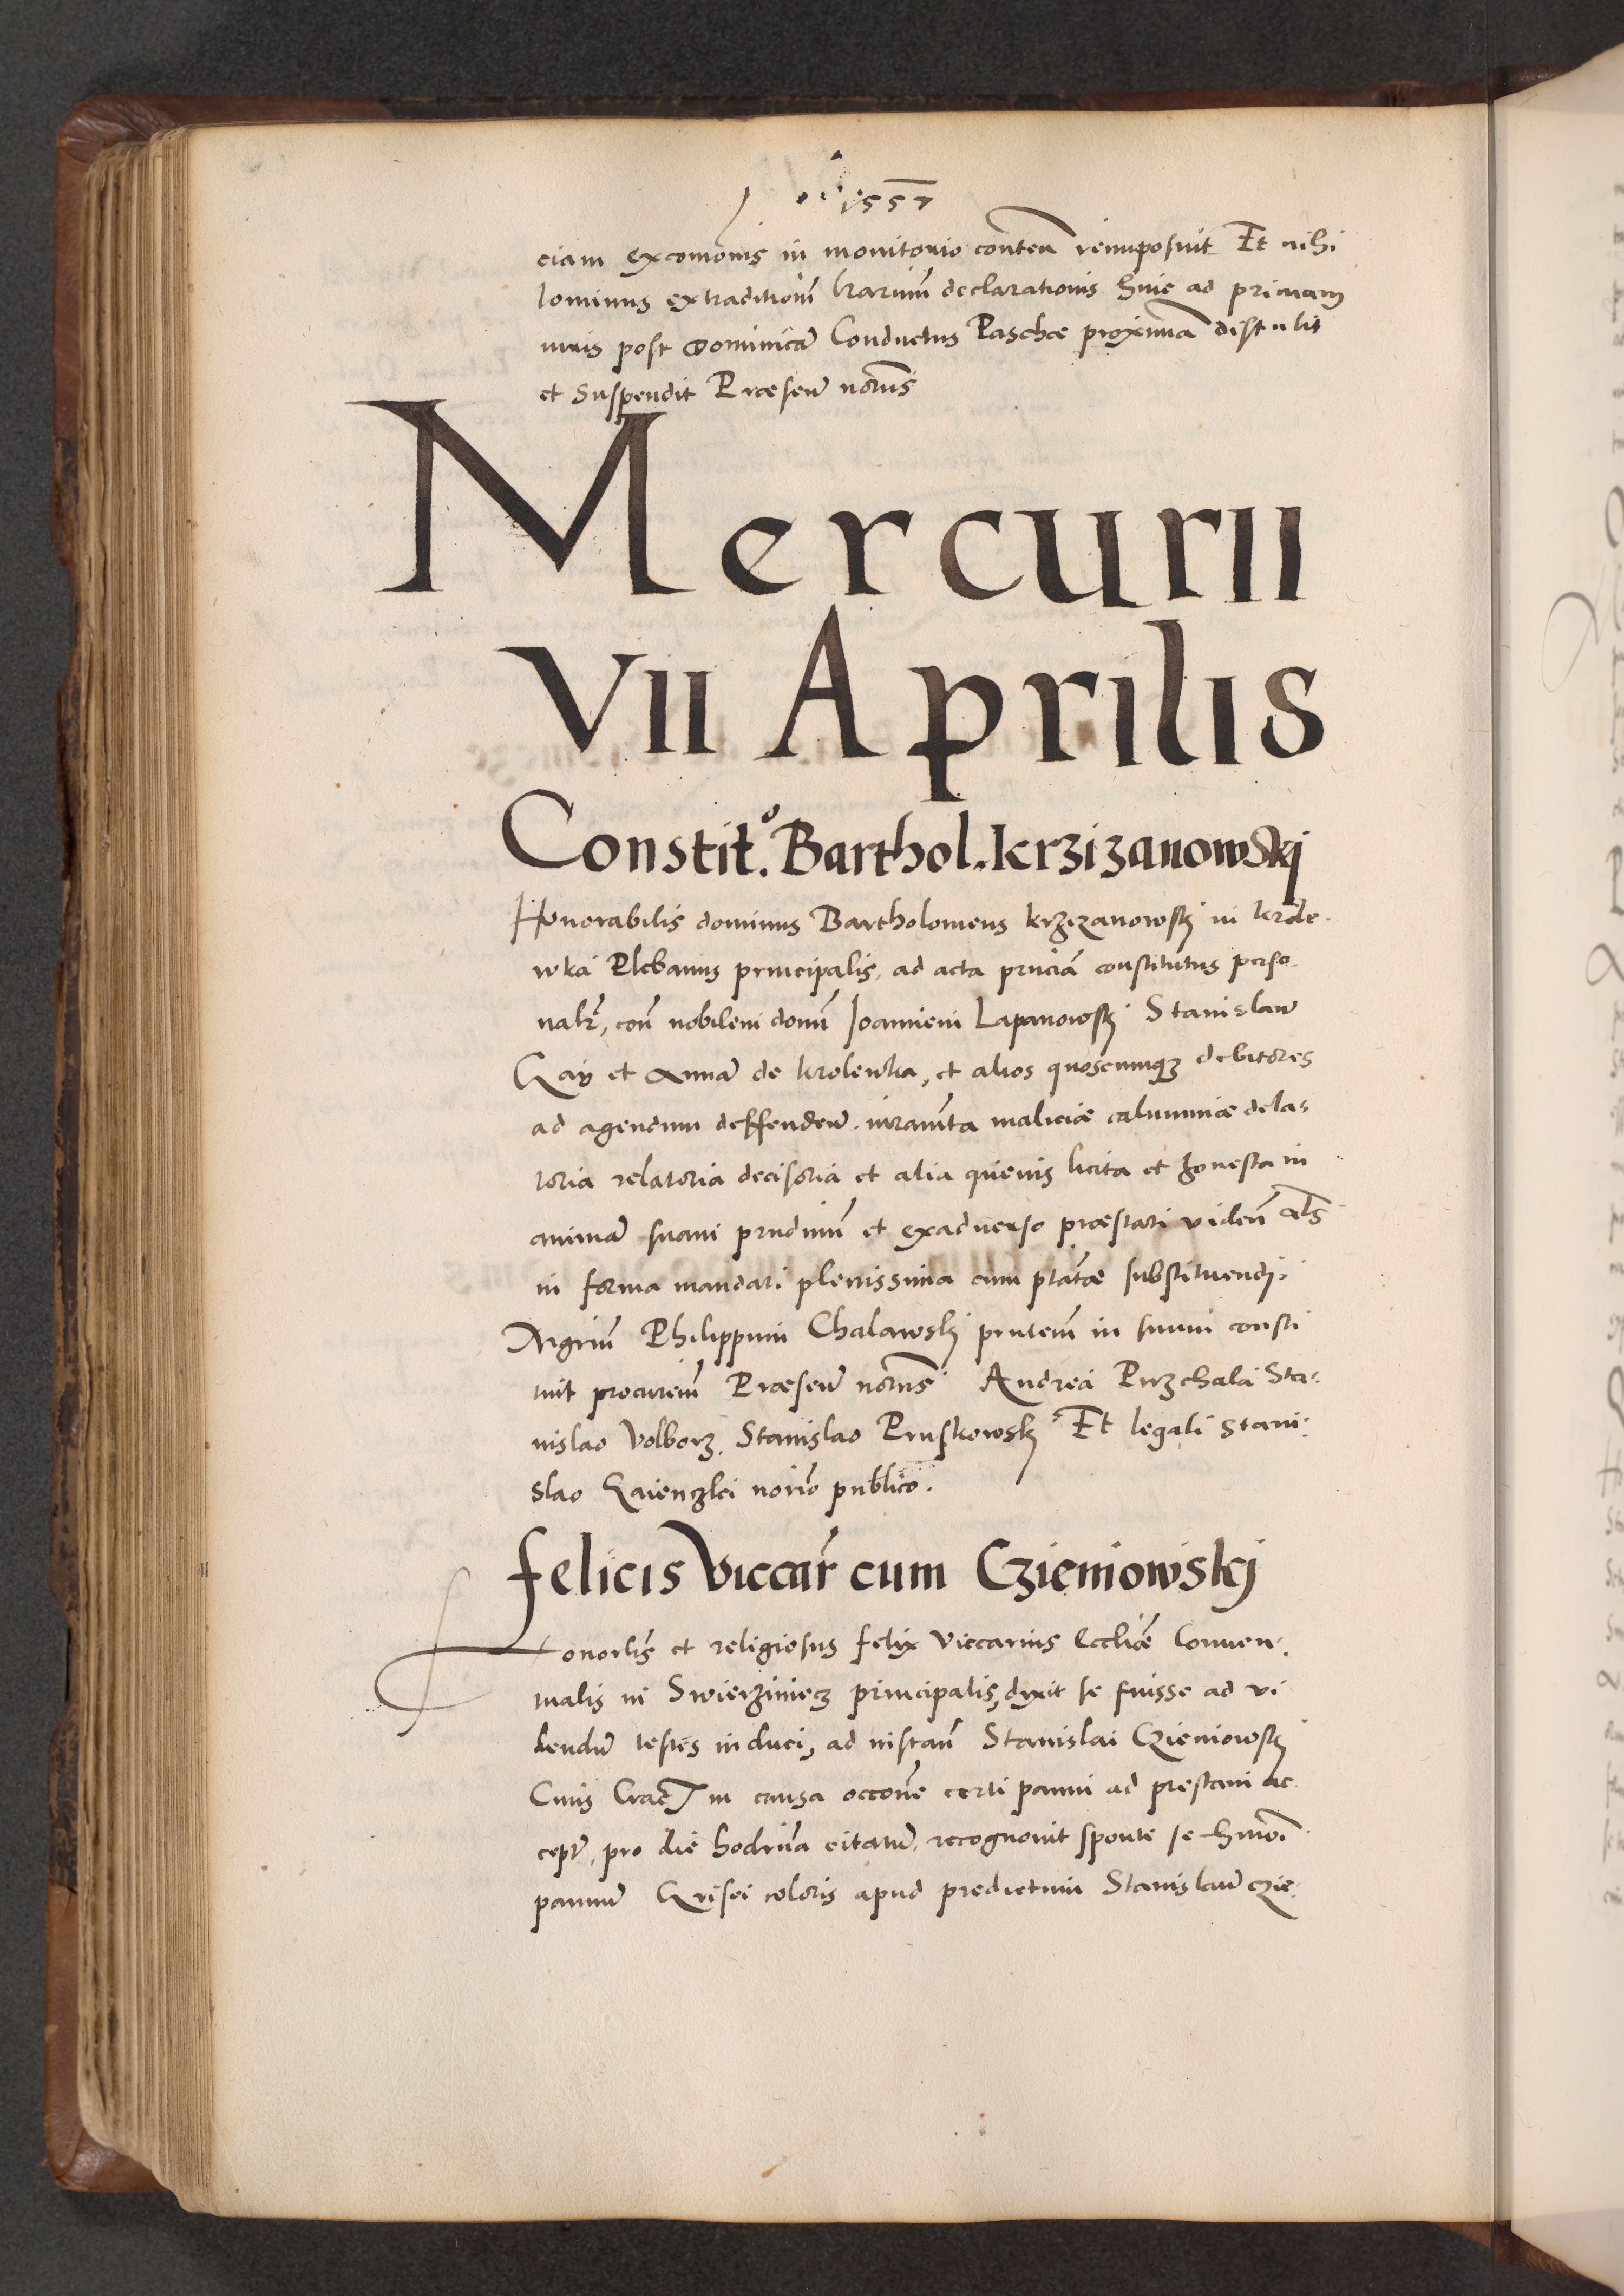 1557
ciam excomonis in monitorio conten reimposuit Et nihi
lominus extraditionem lrarum declarationis huic ad primam
iuris post Dominicam Conductus Paschae proximam distulit
et suspendit Praesen nobis
Mercurii
VII Aprilis
Constit.º Barthol. Krzizanowskj
Honorabilis dominus Bartholomeus Krzizanowskj in Krole-
wka Plebanus principalis, ad acta prncia constitutus perso
nalr, con nobilem domi Joannem Lapanowskj Stanislaum
Gay et Annam de Krolewka, et alios quoscumq debitores
ad agendum deffenden. iuramta maliciae calumniae dela-
toria relatoria decisoria et alia quevis licita et honesta in
animam suam et exadverso praestari viden als
in forma mandati plenissima cum ptatae substituendj.
Mgrum Philippum Chalawskj pntem in suum consti
tuit procurem Praesen nobis Andrea Przchala Sta-
nislao Volborz. Stanislao Pruskowskj Et legali Stani-
slao norio publico.
Felicis Viccar cum Czieniowskj
Honorlis et religiosus Felix Viccarius Eccliae Conven-
tualis in Swierziniecz principalis, dixit se fuisse ad vi
dendum testes induci, ad instan Stanislai Czieniowskj
Civis Crac in causa occone certi panni ad prestam ac
cept, pro die hodierna citatum, recognovit sponte se hmoi
pannum Grisei coloris apud predictum Stanislaum Czie-